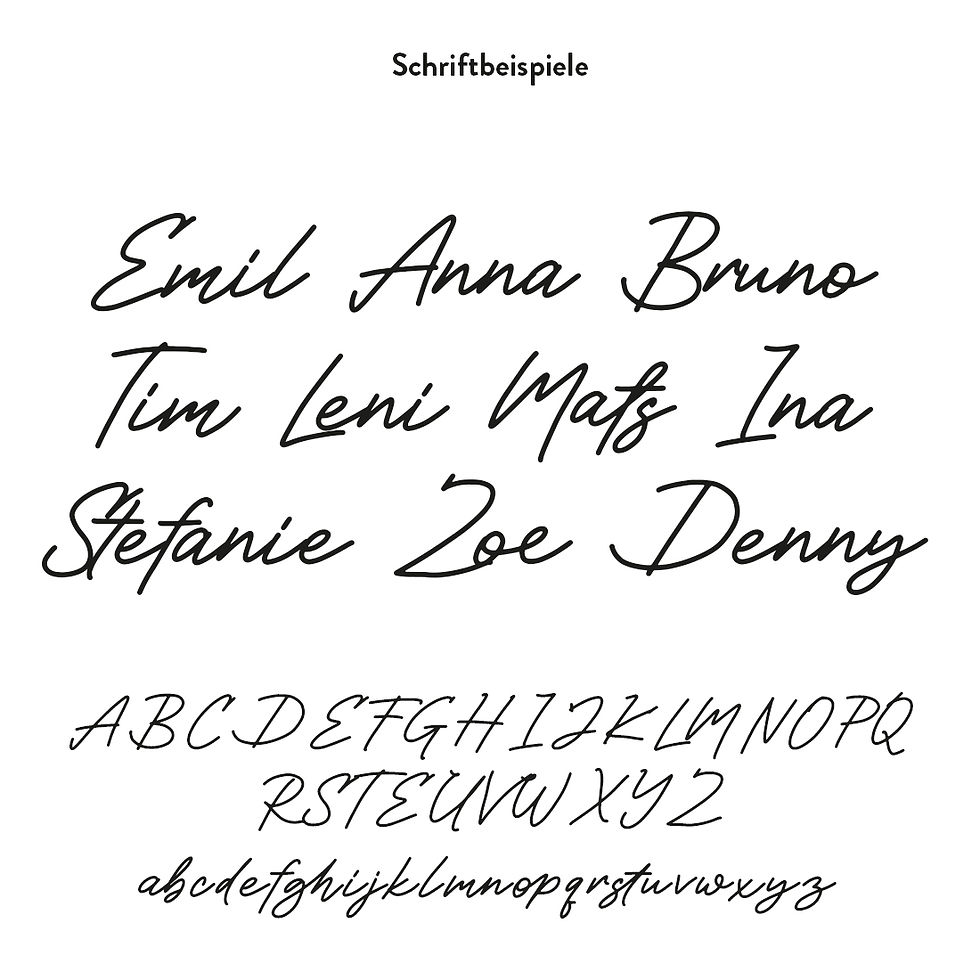 Schriftbeispiele
Emil Anna Bruno
Tim Leni Mats Ina
Stefanie Zoe Denny
ABCDEFGHIJKLMNOPQ
RSTEUVWXYZ
abcdefghijklmnopqrstuvwxyz